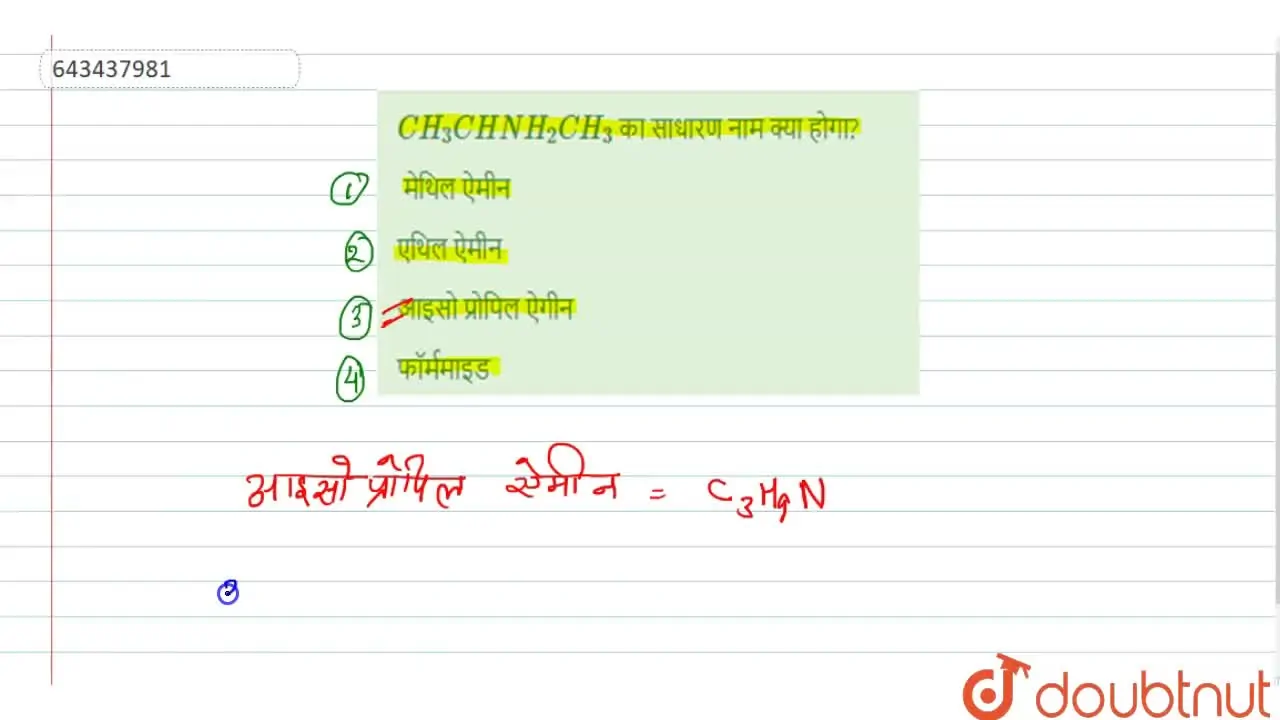 643437981
CH₃CHNH₂CH₃ का साधारण नाम क्या होगा?
① मेथिल ऐमीन
② एथिल ऐमीन
③ आइसो प्रोपिल ऐगीन
④ फॉर्ममाइड
आइसो प्रोपिल ऐमीन = C₃H₉N
doubtnut